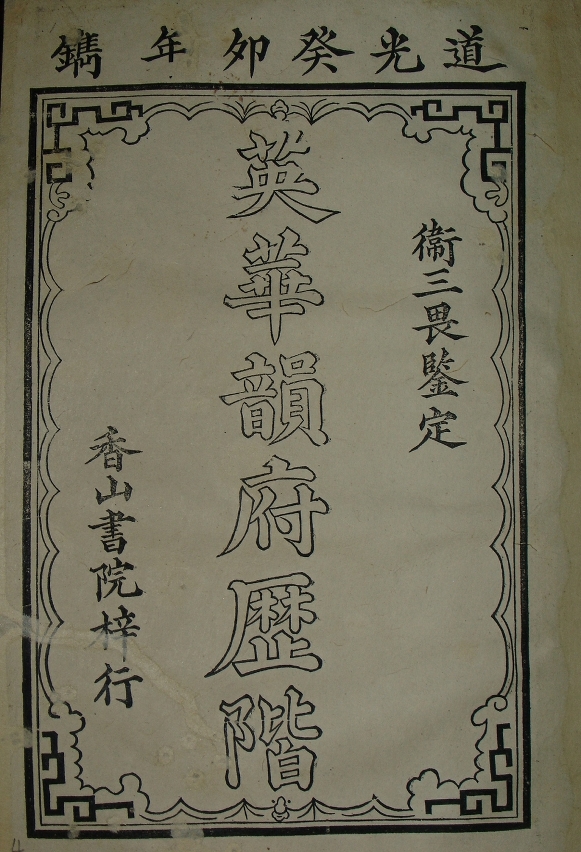 道光癸卯年鐫
衞三畏鑒定
英華韻府歷階
香山書院梓行